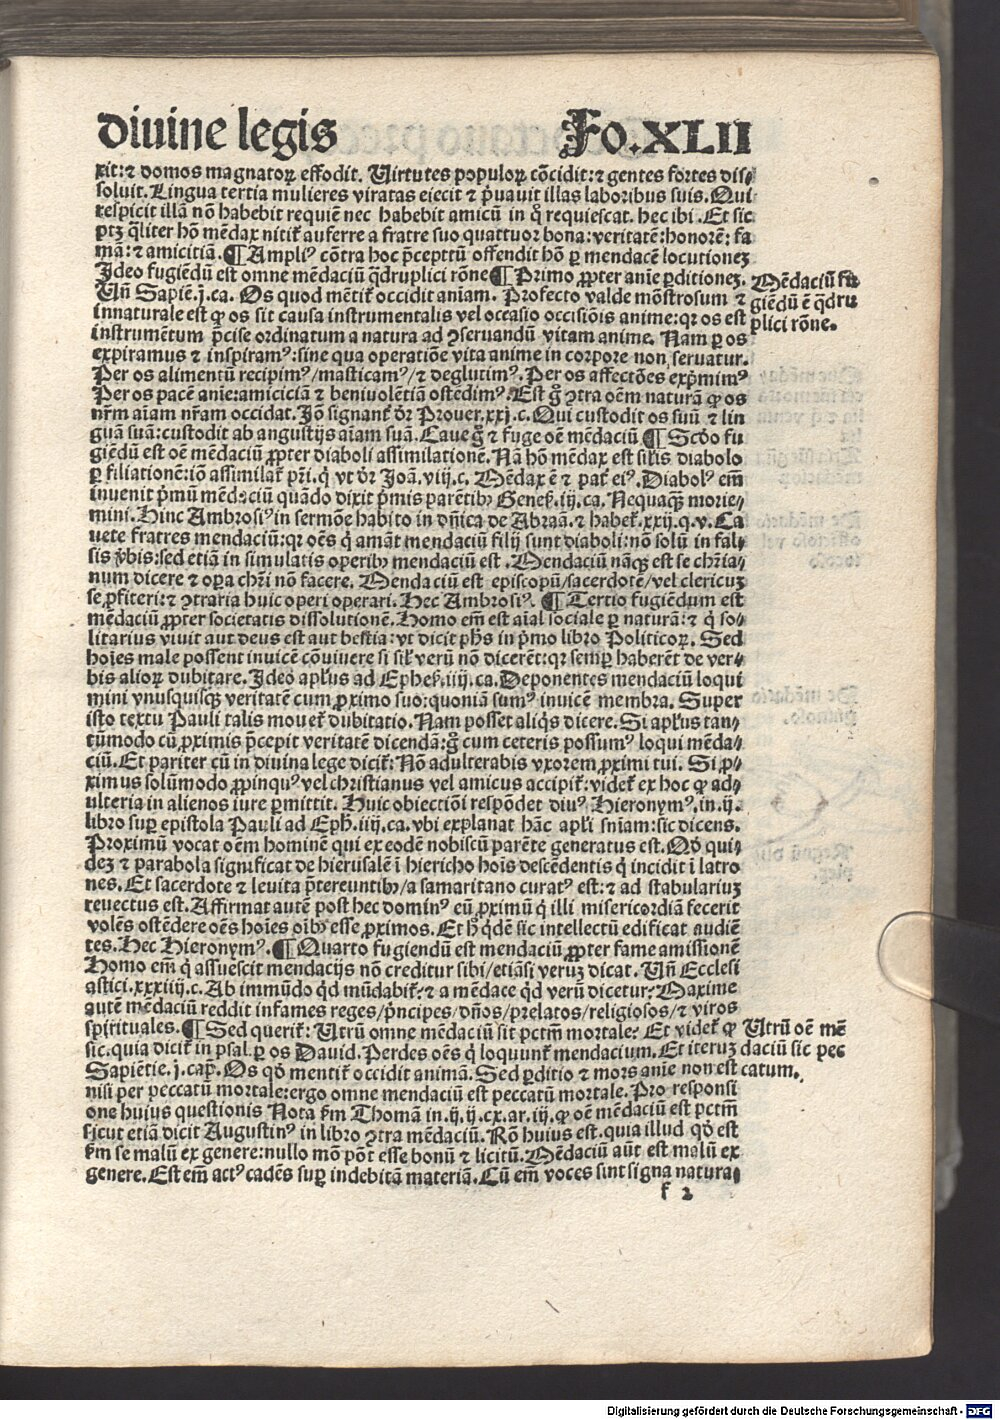 diuine legis Fo.XLII
xit:⁊ domos magnatoꝝ effodit. Uirtutes populoꝝ cōcidit:⁊ gentes fortes dis⸗
soluit. Lingua tertia mulieres viratas eiecit ⁊ p̄uauit illas laboribus suis. Qui
respicit illā nō habebit requiē nec habebit amicū in q̊ requiescat. hec ibi. Et sic
ptꝫ q̄liter hō mēdax nitit᷑ auferre a fratre suo quattuor bona: veritatē: honorē: fa
mā: ⁊ amicitiā. ¶ Ampliꝰ cōtra hoc p̄ceptū offendit hō ꝑ mendacē locutionez
Ideo fugiēdū est omne mēdaciū q̄druplici rōne ¶ Primo ꝓpter anīe ꝑditionez.
Mēdaciū fu
giēdū ē q̄dru
plici rōne.
Uñ Sapiē.j.ca. Os quod mētit᷑ occidit anīam. Profecto valde mōstrosum ⁊
innaturale est ꝙ os sit causa instrumentalis vel occasio occisiōis anime: qꝛ os est
instrumētum p̄cise ordinatum a natura ad ꝯseruandū vitam anime. Nam ꝑ os
expiramus ⁊ inspiramꝰ: sine qua operatiōe vita anime in corpore non seruatur.
Per os alimentū recipimꝰ/masticamꝰ/⁊ deglutimꝰ. Per os affectōes exp̄mimꝰ
Per os pacē anīe: amiciciā ⁊ beniuolētiā ostēdimꝰ. Est g̊ ꝯtra oēm naturā ꝙ os
nr̄m aīam nr̄am occidat. Iō signant᷑ dr̄ Prouer.xxj.c. Qui custodit os suū ⁊ lin
guā suā: custodit ab angustijs aīam suā. Caue g̊ ⁊ fuge oē mēdaciū ¶ Scd̄o fu
giēdū est oē mēdaciū ꝓpter diaboli assimilationē. Nā hō mēdax est sil̄is diabolo
ꝑ filiationē: iō assimilat᷑ pr̄i. q̇ vt dr̄ Joā.viij.c. Mēdax ē ⁊ pat᷑ eiꝰ. Diabolꝰ em̄
inuenit p̄mū mēdaciū quādo dixit p̄mis parētibꝰ Geneſ.iij.ca. Nequaqꝫ morie⸗
mini. Hinc Ambrosiꝰ in sermōe habito in dn̄ica de Abraā. ⁊ habet᷑.xxij.q.v. Ca
uete fratres mendaciū: qꝛ oēs q̇ amāt mendaciū filij sunt diaboli: nō solū in fal⸗
sis v̄bis: sed etiā in simulatis operibꝰ mendaciū est. Mendaciū nāqꝫ est se chr̄ia⸗
num dicere ⁊ oꝑa chr̄i nō facere. Mendaciū est episcopū/sacerdotē/vel clericuz
se ꝓfiteri: ⁊ ꝯtraria huic operi operari. Hec Ambrosiꝰ. ¶ Tertio fugiēdum est
mēdaciū ꝓpter societatis dissolutionē. Homo em̄ est aīal sociale ꝑ naturā: ⁊ q̇ so⸗
litarius viuit aut deus est aut bestia: vt dicit ph̄s in p̄mo libro Politicoꝝ. Sed
hoīes male possent inuicē cōuiuere si sil̄ verū nō dicerēt: qꝛ semꝑ haberēt de ver⸗
bis alioꝝ dubitare. Ideo apl̄us ad Epheſ.iiij.ca. Deponentes mendaciū loqui
mini vnusquisqꝫ veritatē cum ꝓximo suo: quoniā sumꝰ inuicē membra. Super
isto textu Pauli talis mouet᷑ dubitatio. Nam posset aliq̇s dicere. Si apl̄us tan⸗
tūmodo cū ꝓximis p̄cepit veritatē dicendā: g̊ cum ceteris possumꝰ loqui mēda⸗
ciū. Et pariter cū in diuina lege dicit᷑: Nō adulterabis vxorem ꝓximi tui. Si ꝓ⸗
ximus solūmodo ꝓpinquꝰ vel christianus vel amicus accipit᷑: videt᷑ ex hoc ꝙ ad⸗
ulteria in alienos iure ꝑmittit. Huic obiectiōi respōdet diuꝰ Hieronymꝰ.in.ij.
libro suꝑ epistola Pauli ad Eph̄.iiij.ca. vbi explanat hāc apl̄i sn̄iam: sic dicens.
Proximū vocat oēm hominē qui ex eodē nobiscū parēte generatus est. Qd̄ qui⸗
dez ⁊ parabola significat de hierusalē ī hiericho hoīs descēdentis q̇ incidit ī latro
nes. Et sacerdote ⁊ leuita p̄tereuntibꝰ/a samaritano curatꝰ est: ⁊ ad stabulariuz
reuectus est. Affirmat autē post hec dominꝰ eū ꝓximū q̇ illi misericordiā fecerit
volēs ostēdere oēs hoīes oībꝰ esse ꝓximos. Et h̄ q̇dē sic intellectū edificat audiē
tes. Hec Hieronymꝰ. ¶ Quarto fugiendū est mendaciū ꝓpter fame amissionē
Homo em̄ q̇ assuescit mendacijs nō creditur sibi/etiāsi veruz dicat. Uñ Ecclesi
astici.xxxiiij.c. Ab immūdo qd̄ mūdabit᷑: ⁊ a mēdace qd̄ verū dicetur: Maxime
autē mēdaciū reddit infames reges/p̄ncipes/dn̄os/prelatos/religiosos/⁊ viros
spirituales. ¶ Sed querit᷑: Utrū omne mēdaciū sit pctm̄ mortale: Et videt᷑ ꝙ
Utrū oē mē
daciū sic pec
catum.
sic. quia dicit᷑ in psal. ꝑ os Dauid. Perdes oēs q̇ loquunt᷑ mendacium. Et iteruz
Sapiētie.j.cap. Os qd̄ mentit᷑ occidit animā. Sed ꝑditio ⁊ mors anīe non est
nisi per peccatū mortale: ergo omne mendaciū est peccatū mortale. Pro responsi
one huius questionis Nota ẜm Thomā in.ij.ij.cx.ar.iij. ꝙ oē mēdaciū est pctm̄
sicut etiā dicit Augustinꝰ in libro ꝯtra mēdaciū. Rō huius est. quia illud qd̄ est
ẜm se malū ex genere: nullo mō pōt esse bonū ⁊ licitū. Mēdaciū aūt est malū ex
genere. Est em̄ actꝰ cadēs suꝑ indebitā materiā. Cū em̄ voces sint signa natura⸗
f 2
Digitalisierung gefördert durch die Deutsche Forschungsgemeinschaft - DFG